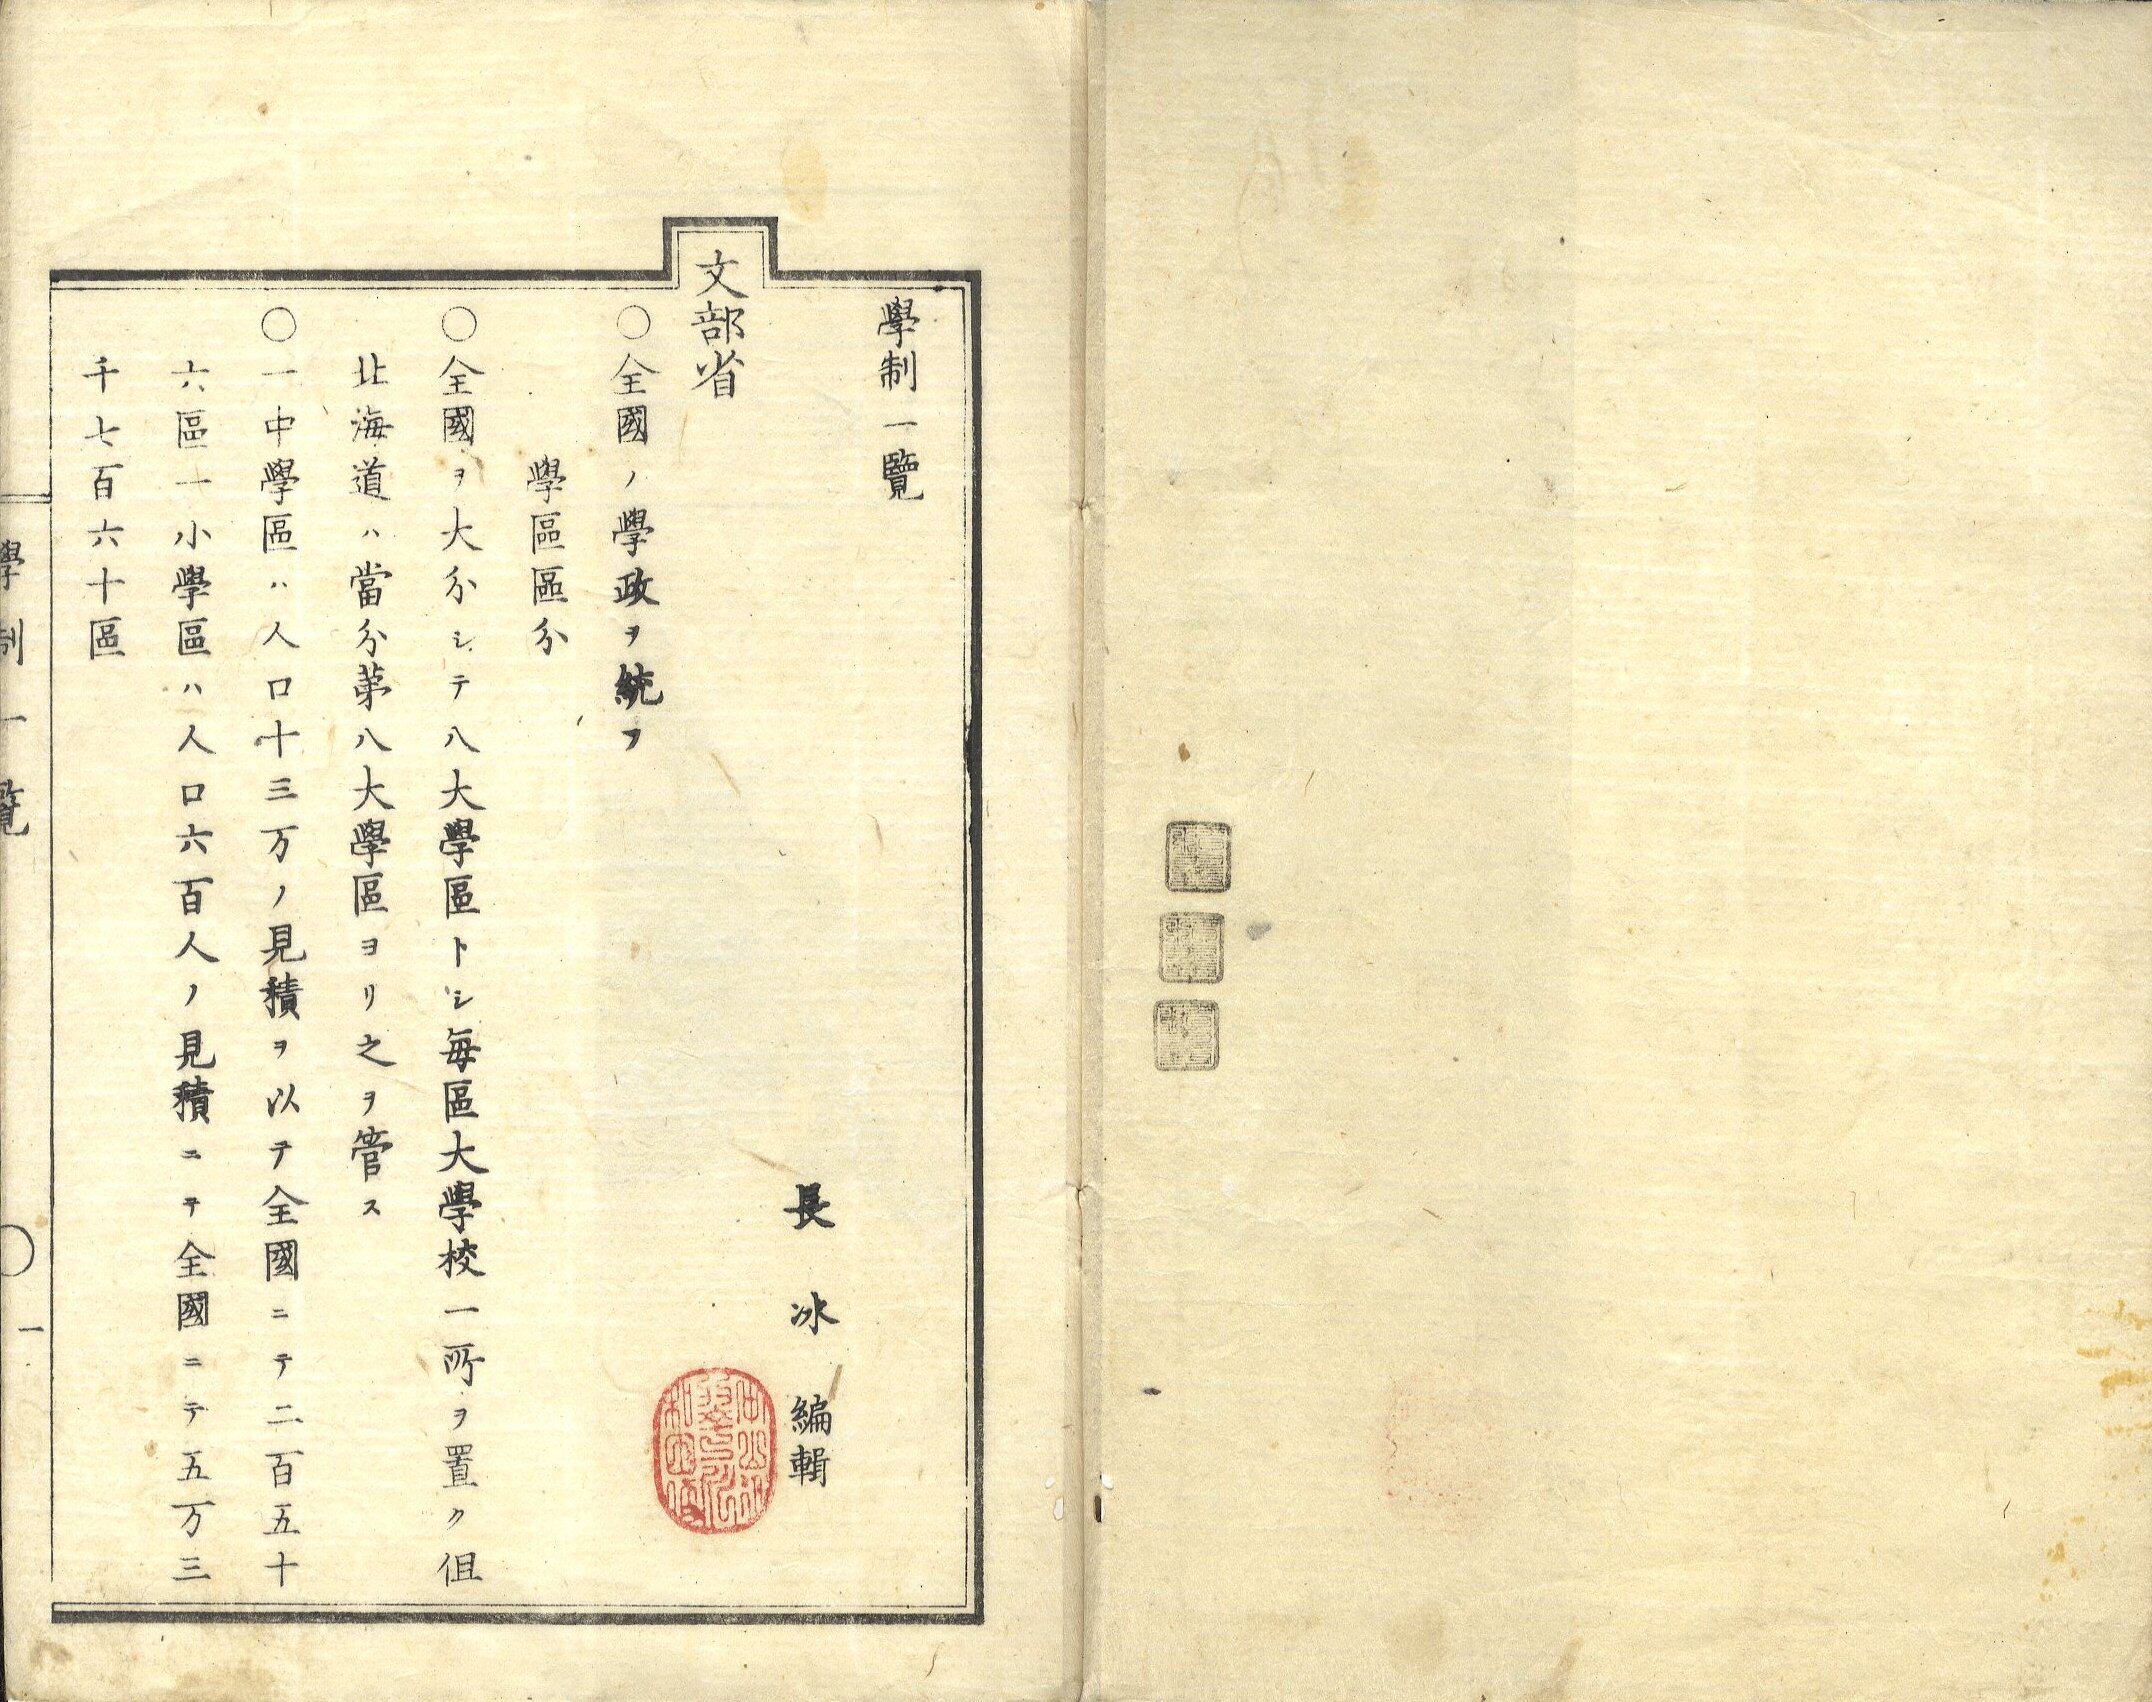 學制一覽
長冰編輯
文部省
○全國ノ學政ヲ統フ
學區區分
○全國ヲ大分シテ八大學區トシ毎區大學校一所ヲ置ク但
北海道ハ當分第八大學區ヨリ之ヲ管ス
○一中學區ハ人口十三万ノ見積ヲ以テ全國ニテ二百五十
六區一小學區ハ人口六百人ノ見積ニテ全國ニテ五万三
千七百六十區
學制一覽
一